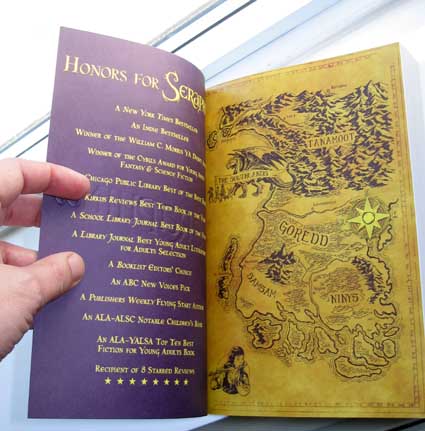 Honors for
A New York Times Bestseller
An Indie Bestseller
Winner of the William C. Morris YA Debut
Winner of the Cybils Award for Young Adult
Fantasy & Science Fiction
Chicago Public Library Best of the Best
Kirkus Reviews Best Teen Book of the
A School Library Journal Best Book of the
A Library Journal Best Young Adult
for Adults Selection
A Booklist Editors' Choice
An ABC New Voices Pick
A Publishers Weekly Flying Start
An ALA-ALSC Notable Children's Book
An ALA-YALSA Top Ten Best
Fiction for Young Adults Book
Recipient of 8 Starred Reviews
Tanamoot
The Southlands
Goredd
Samsam
Ninys